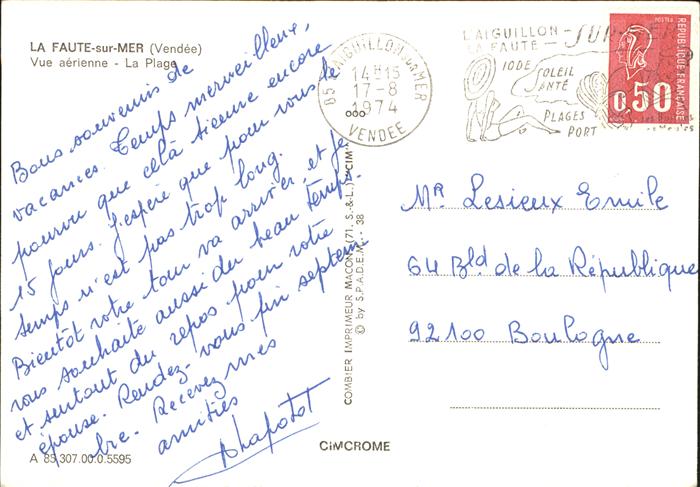 LA FAUTE-sur-MER (Vendée)
Vue aérienne - La Plage
Bons souvenirs de
vacances. Temps merveilleux,
pourvu que celà tienne encore
15 jours. J'espère que pour vous le
temps n'est pas trop long.
Bientôt votre tour va arriver, et je
vous souhaite aussi du beau temps.
et surtout du repos pour votre
épouse. Rendez-vous fin septem
bre. Recevez mes
amitiés
Chapotot
A 85 307.00.0.5595
COMBIER IMPRIMEUR MACON (71, S.-&-L.) "CIM"
© by S.P.A.D.E.M. - 38
CIMCROME
85 L'AIGUILLON S/MER
14H15
17-8
1974
VENDEE
L'AIGUILLON-
LA FAUTE-SUR-MER
IODE
SOLEIL
SANTÉ
PLAGES
PORT
POSTES
REPUBLIQUE FRANÇAISE
0,50
Mr Lesieux Emile
64 Bld de la République
92100 Boulogne